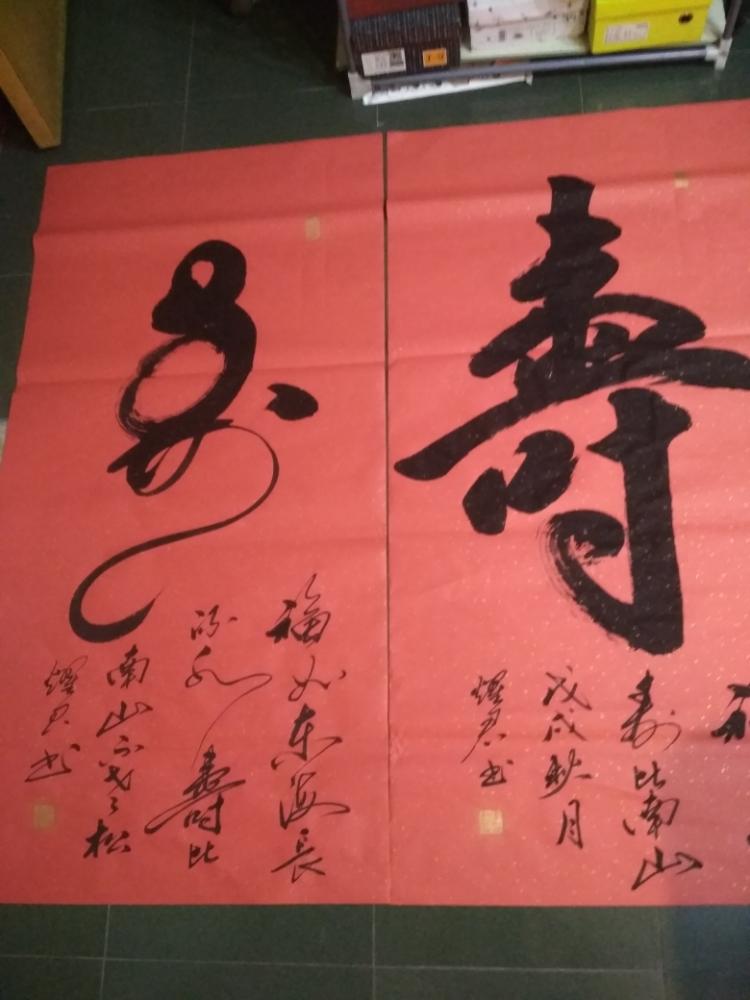 寿
福如东海长
流水壽比
南山不老松
耀君书
壽
寿比南山
戊戌秋月
耀君书